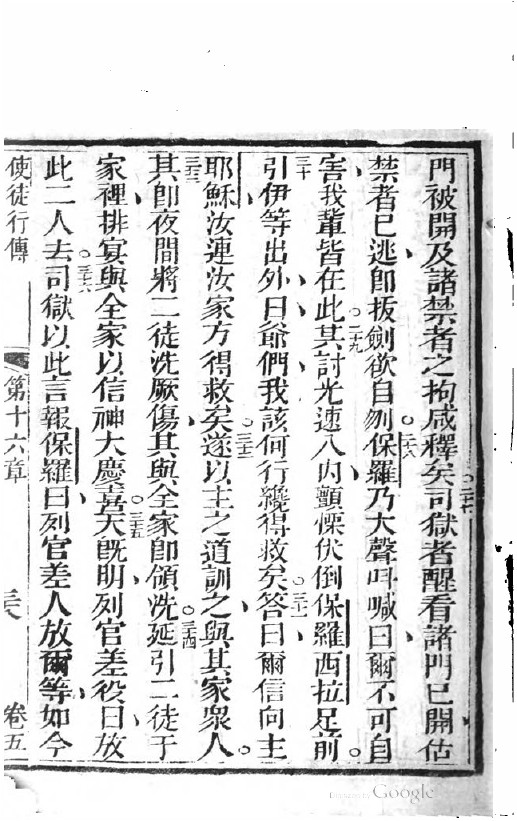 門被開及諸禁者之拘咸釋矣○二十七司獄者醒看諸門已開估
禁者已逃卽拔劍欲自刎○二十八保羅乃大聲呌喊曰爾不可自
害我輩皆在此○二十九其討光速入內顫慄伏倒保羅西拉足前○
三十引伊等出外曰爺們我該何行纔得救矣○三十一答曰爾信向主
耶穌汝連汝家方得救矣○三十二遂以主之道訓之與其家衆人○
三十三其卽夜間將二徒洗厥傷其與全家卽領洗○三十四延引二徒于
家裡排宴與全家以信神大慶喜○三十五天旣明列官差役曰放
此二人去○三十六司獄以此言報保羅曰列官差人放爾等如今
使徒行傳 第十六章 卷五
Google